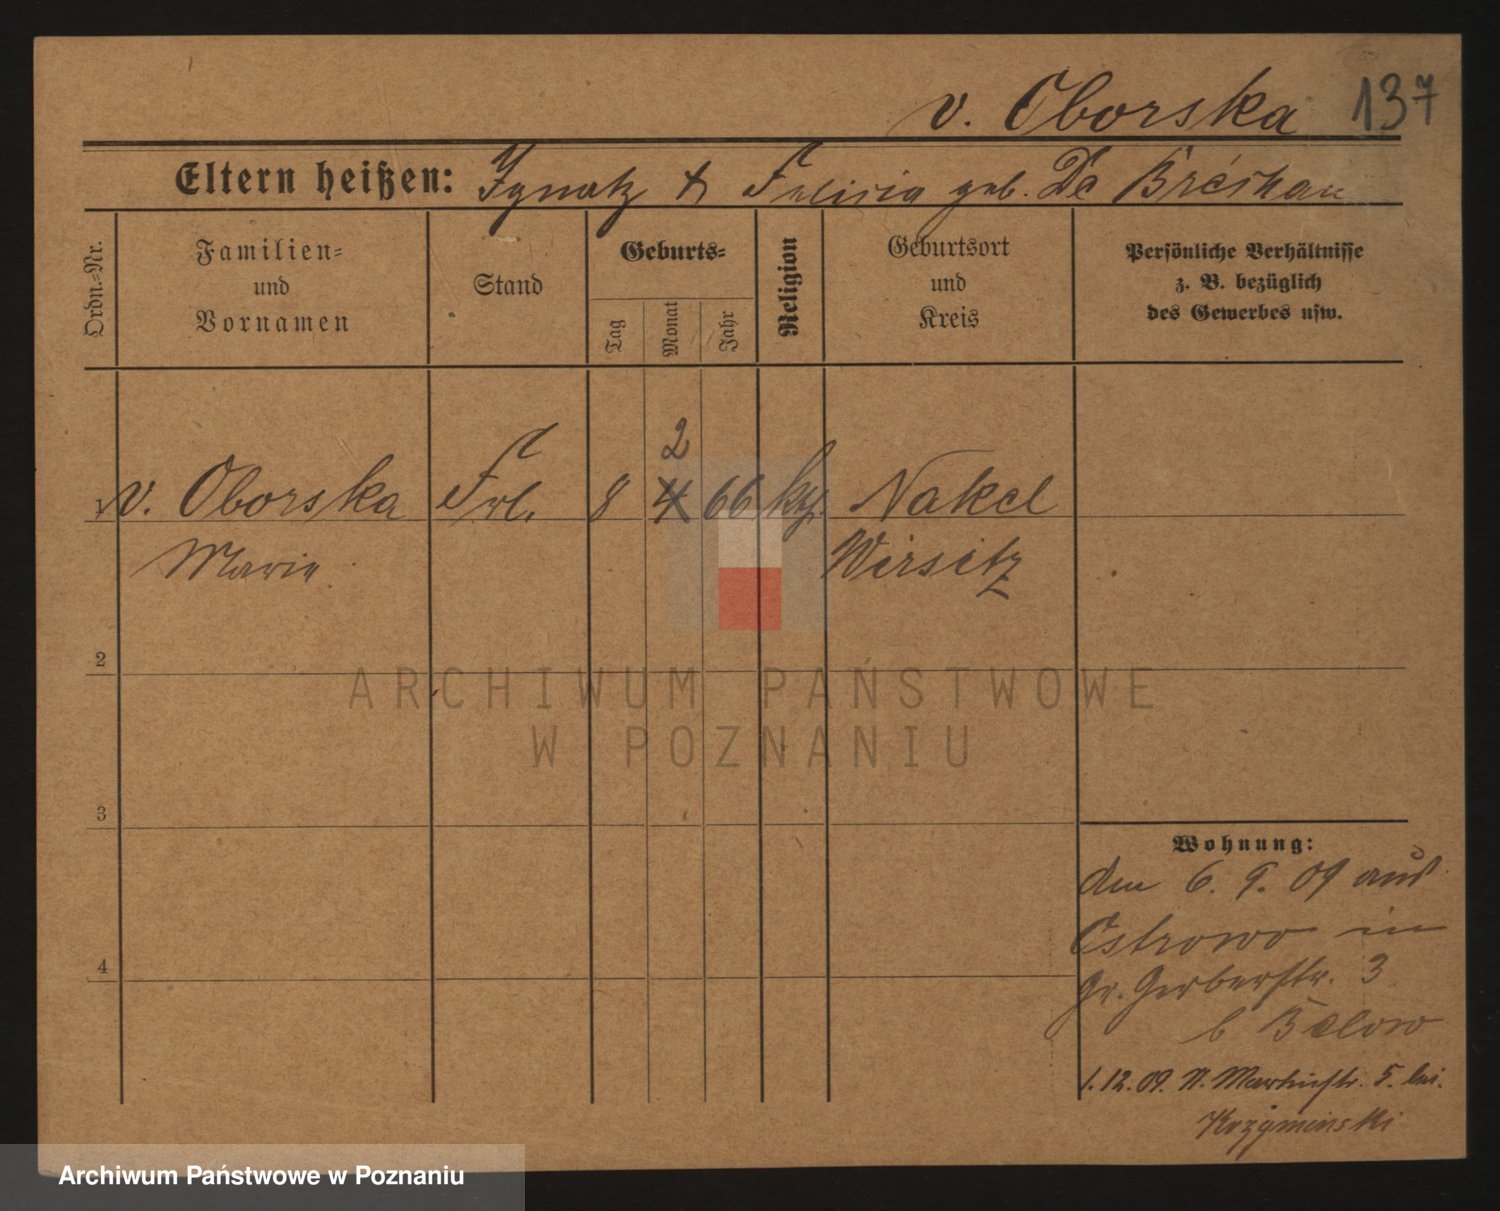 v. Oborska 137
Eltern heißen: Ignatz & Felisia geb. De
Ordn.-Nr.
Familien-
und
Vornamen
Stand
Geburts-
Tag
Monat
Jahr
Religion
Geburtsort
und
Kreis
Persönliche Verhältnisse
z. B. bezüglich
des Gewerbes usw.
2
1 v. Oborska Frl. 8 4 66 Nakel
Marie Wirsitz
2
ARCHIWUM PAŃSTWOWE
W POZNANIU
3
4
Wohnung:
den 6. 9. 09 aus
Ostrowo in
Gr. Gerberstr. 3
b Below
1. 12. 09. N. Martinstr. 5. bei
Krzyminski
Archiwum Państwowe w Poznaniu